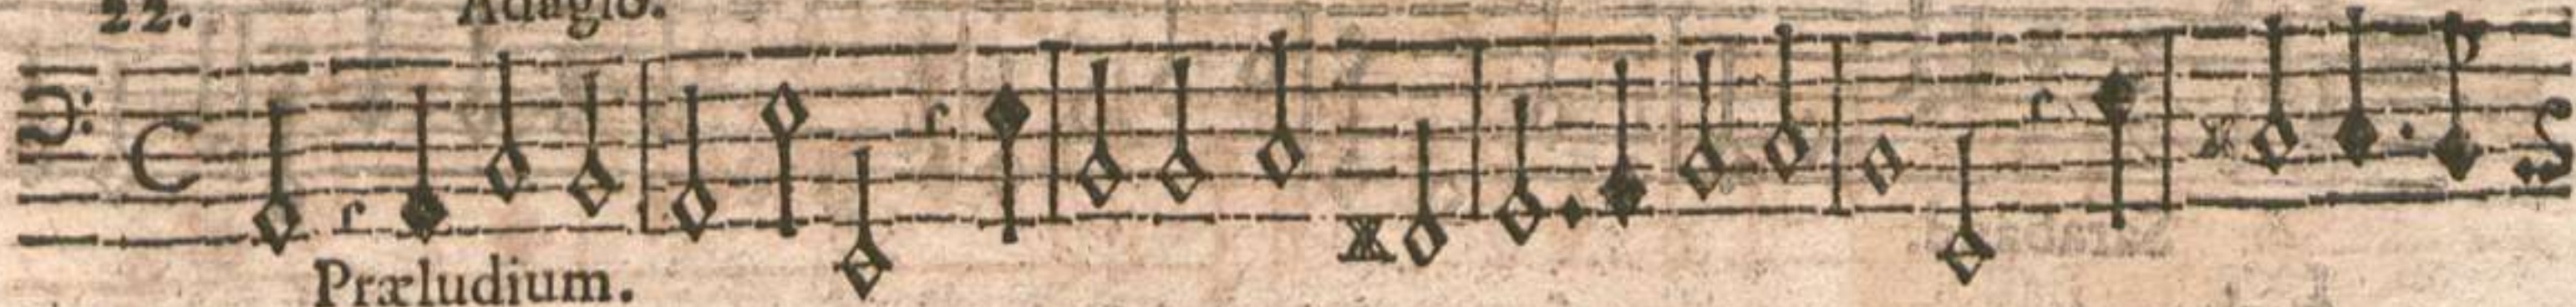 22. Adagio.
Præludium.